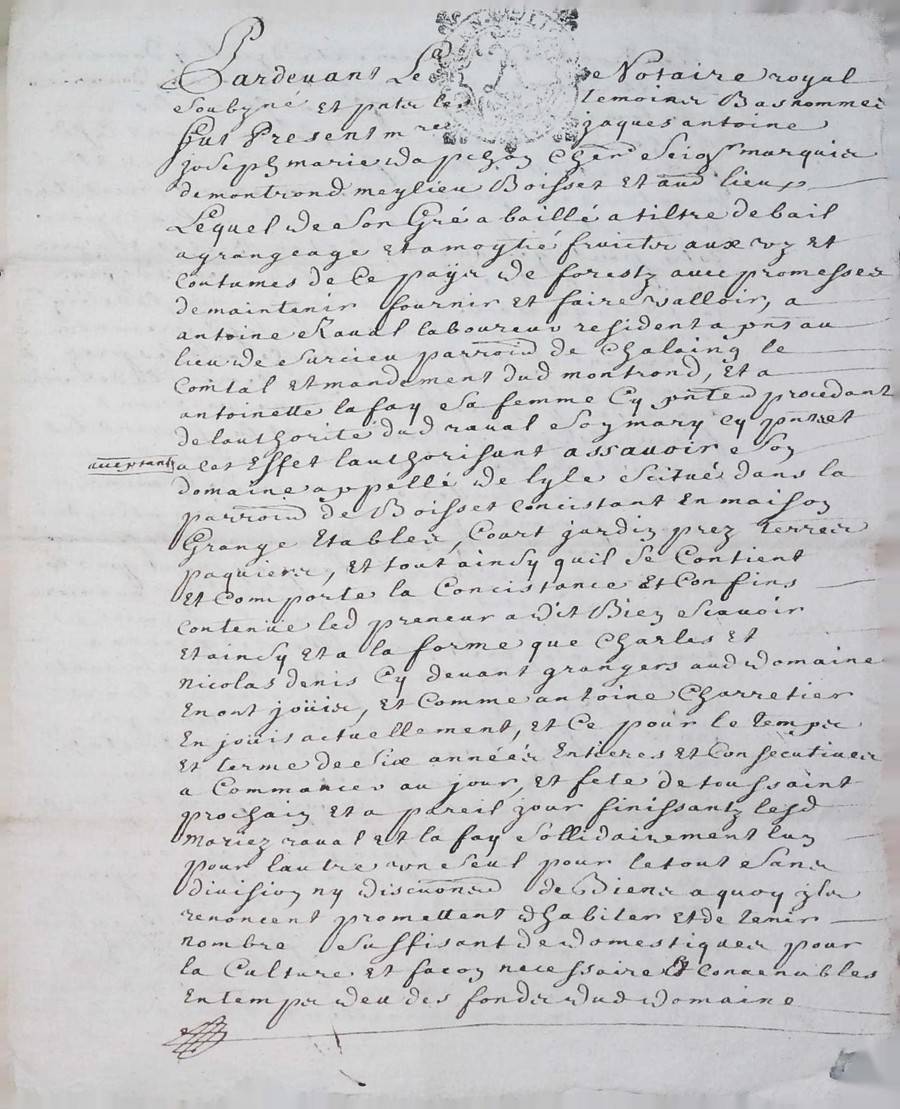 Pardevant Le Notaire royal
soubzné et pntz les temoins Basnommez
fut Present mre jaques antoine
joseph marie dapchon chēr seigr marquis
de montrond meylieu Boisset et aud lieux
Lequel de son Gré a baillé a tiltre de bail
a grangeage et a moytié fruicts aux vz et
coutumes de Ce payis de forestz avec promesses
de maintenir fournir et faire valloir, a
antoine Raval laboureur resident a pnt au
lieu de surcieu parroiss de chalainq le
comtal et mandement dud montrond, et a
antoinette la fay sa femme cy pnte procedant
de lauthorité dud raval son mary cy pnt et
acceptant
a cet Effet lauthorisant assavoir son
domaine appellé de lyle scitué dans la
parroiss de Boisset concistant en maison
Grange Etables, Court jardin prez terres
paquiers, et tout ainsy quil se Contient
et comporte la Concistance et Confins
contenue led preneur a dit Bien scavoir
et ainsy et a la forme que charles et
nicolas denis cy devant grangers aud domaine
en ont jouis, et Comme antoine charretier
En jouis actuellement, et Ce pour le temps
et terme de six années Entieres et Consecutives
a Commancer au jour, et fete de toussaint
prochain et a pareil jour finissantz lesd
mariez raval et la fay sollidairement lun
pour lautre un seul pour le tout sans
division ny discuoned de Biens a quoy ils
renoncent promettent dhabiter et de tenir
nombre suffisant de domestiques pour
la Culture et facon necessaire et convenables
En temps deu des fonds dud domaine